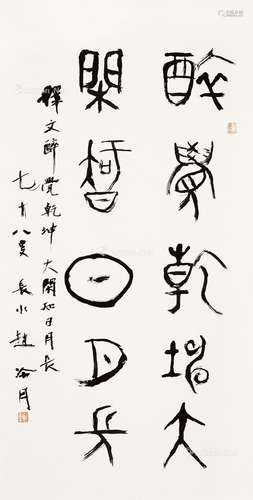 醉覺乾坤大
閑知日月長
釋文醉覺乾坤大閑知日月長
七十八叟 長水趙冷月